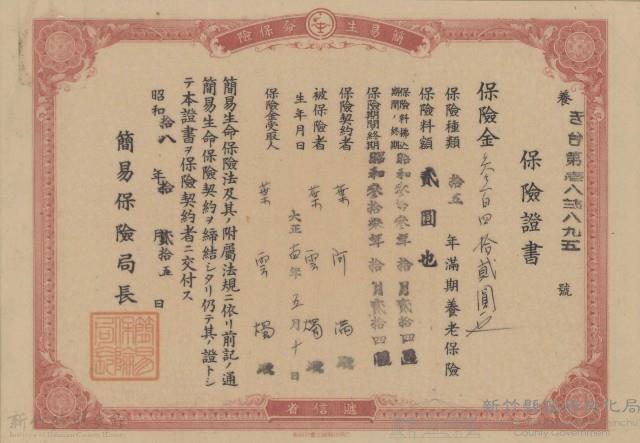 簡易生命保險
養 き台第壱八三八九五號
保險證書
保險金 参百四拾貳圓也
保險種類 拾五年滿期養老保險
保險料額 貳圓也
保險料拂込期間ノ終期 昭和参拾参年拾月貳拾四日
保險期間ノ終期 昭和参拾年拾月貳拾四日
保險契約者 葉阿滿
被保險者 葉雲燭
生年月日 大正年五月十日
保險金受取人 葉雲燭
簡易生命保險法及其ノ附屬法規ニ依リ前記ノ通
簡易生命保險契約ヲ締結シタリ仍テ其ノ證トシ
テ本證書ヲ保險契約者ニ交付ス
昭和拾八年拾月貳拾五日
簡易保險局長
簡易保險局長
遞信省
新竹縣政府文化局
County Government